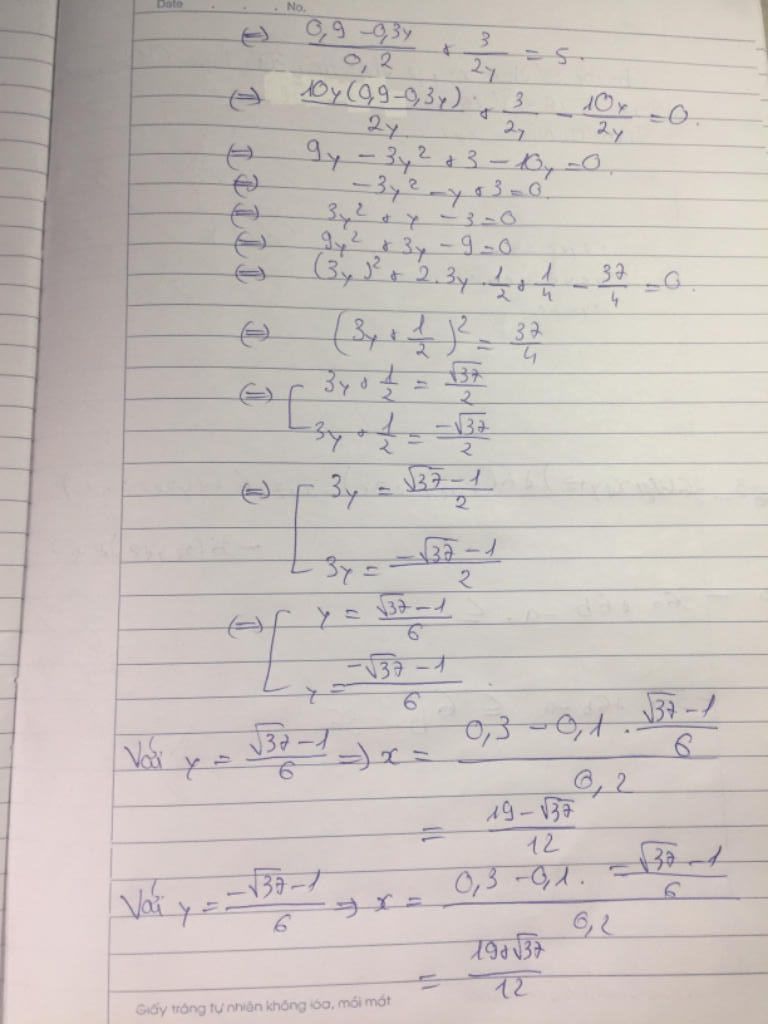 Date . . . No.
⇔ (0,9 − 0,3y)/0,2 + 3/(2y) = 5.
⇔ 10y(0,9 − 0,3y)/(2y) + 3/(2y) − 10y/(2y) = 0.
⇔ 9y − 3y² + 3 − 10y = 0.
⇔ −3y² − y + 3 = 0.
⇔ 3y² + y − 3 = 0
⇔ 9y² + 3y − 9 = 0
⇔ (3y)² + 2.3y.1/2 + 1/4 − 37/4 = 0.
⇔ (3y + 1/2)² = 37/4
⇔ [ 3y + 1/2 = √37/2
3y + 1/2 = −√37/2
⇔ [ 3y = (√37 − 1)/2
3y = (−√37 − 1)/2
⇔ [ y = (√37 − 1)/6
y = (−√37 − 1)/6.
Với y = (√37 − 1)/6 ⇒ x = (0,3 − 0,1 . (√37 − 1)/6)/0,2
= (19 − √37)/12
Với y = (−√37 − 1)/6 ⇒ x = (0,3 − 0,1. (−√37 − 1)/6)/0,2
= (19 + √37)/12
Giấy trắng tự nhiên không lóa, mỏi mắt